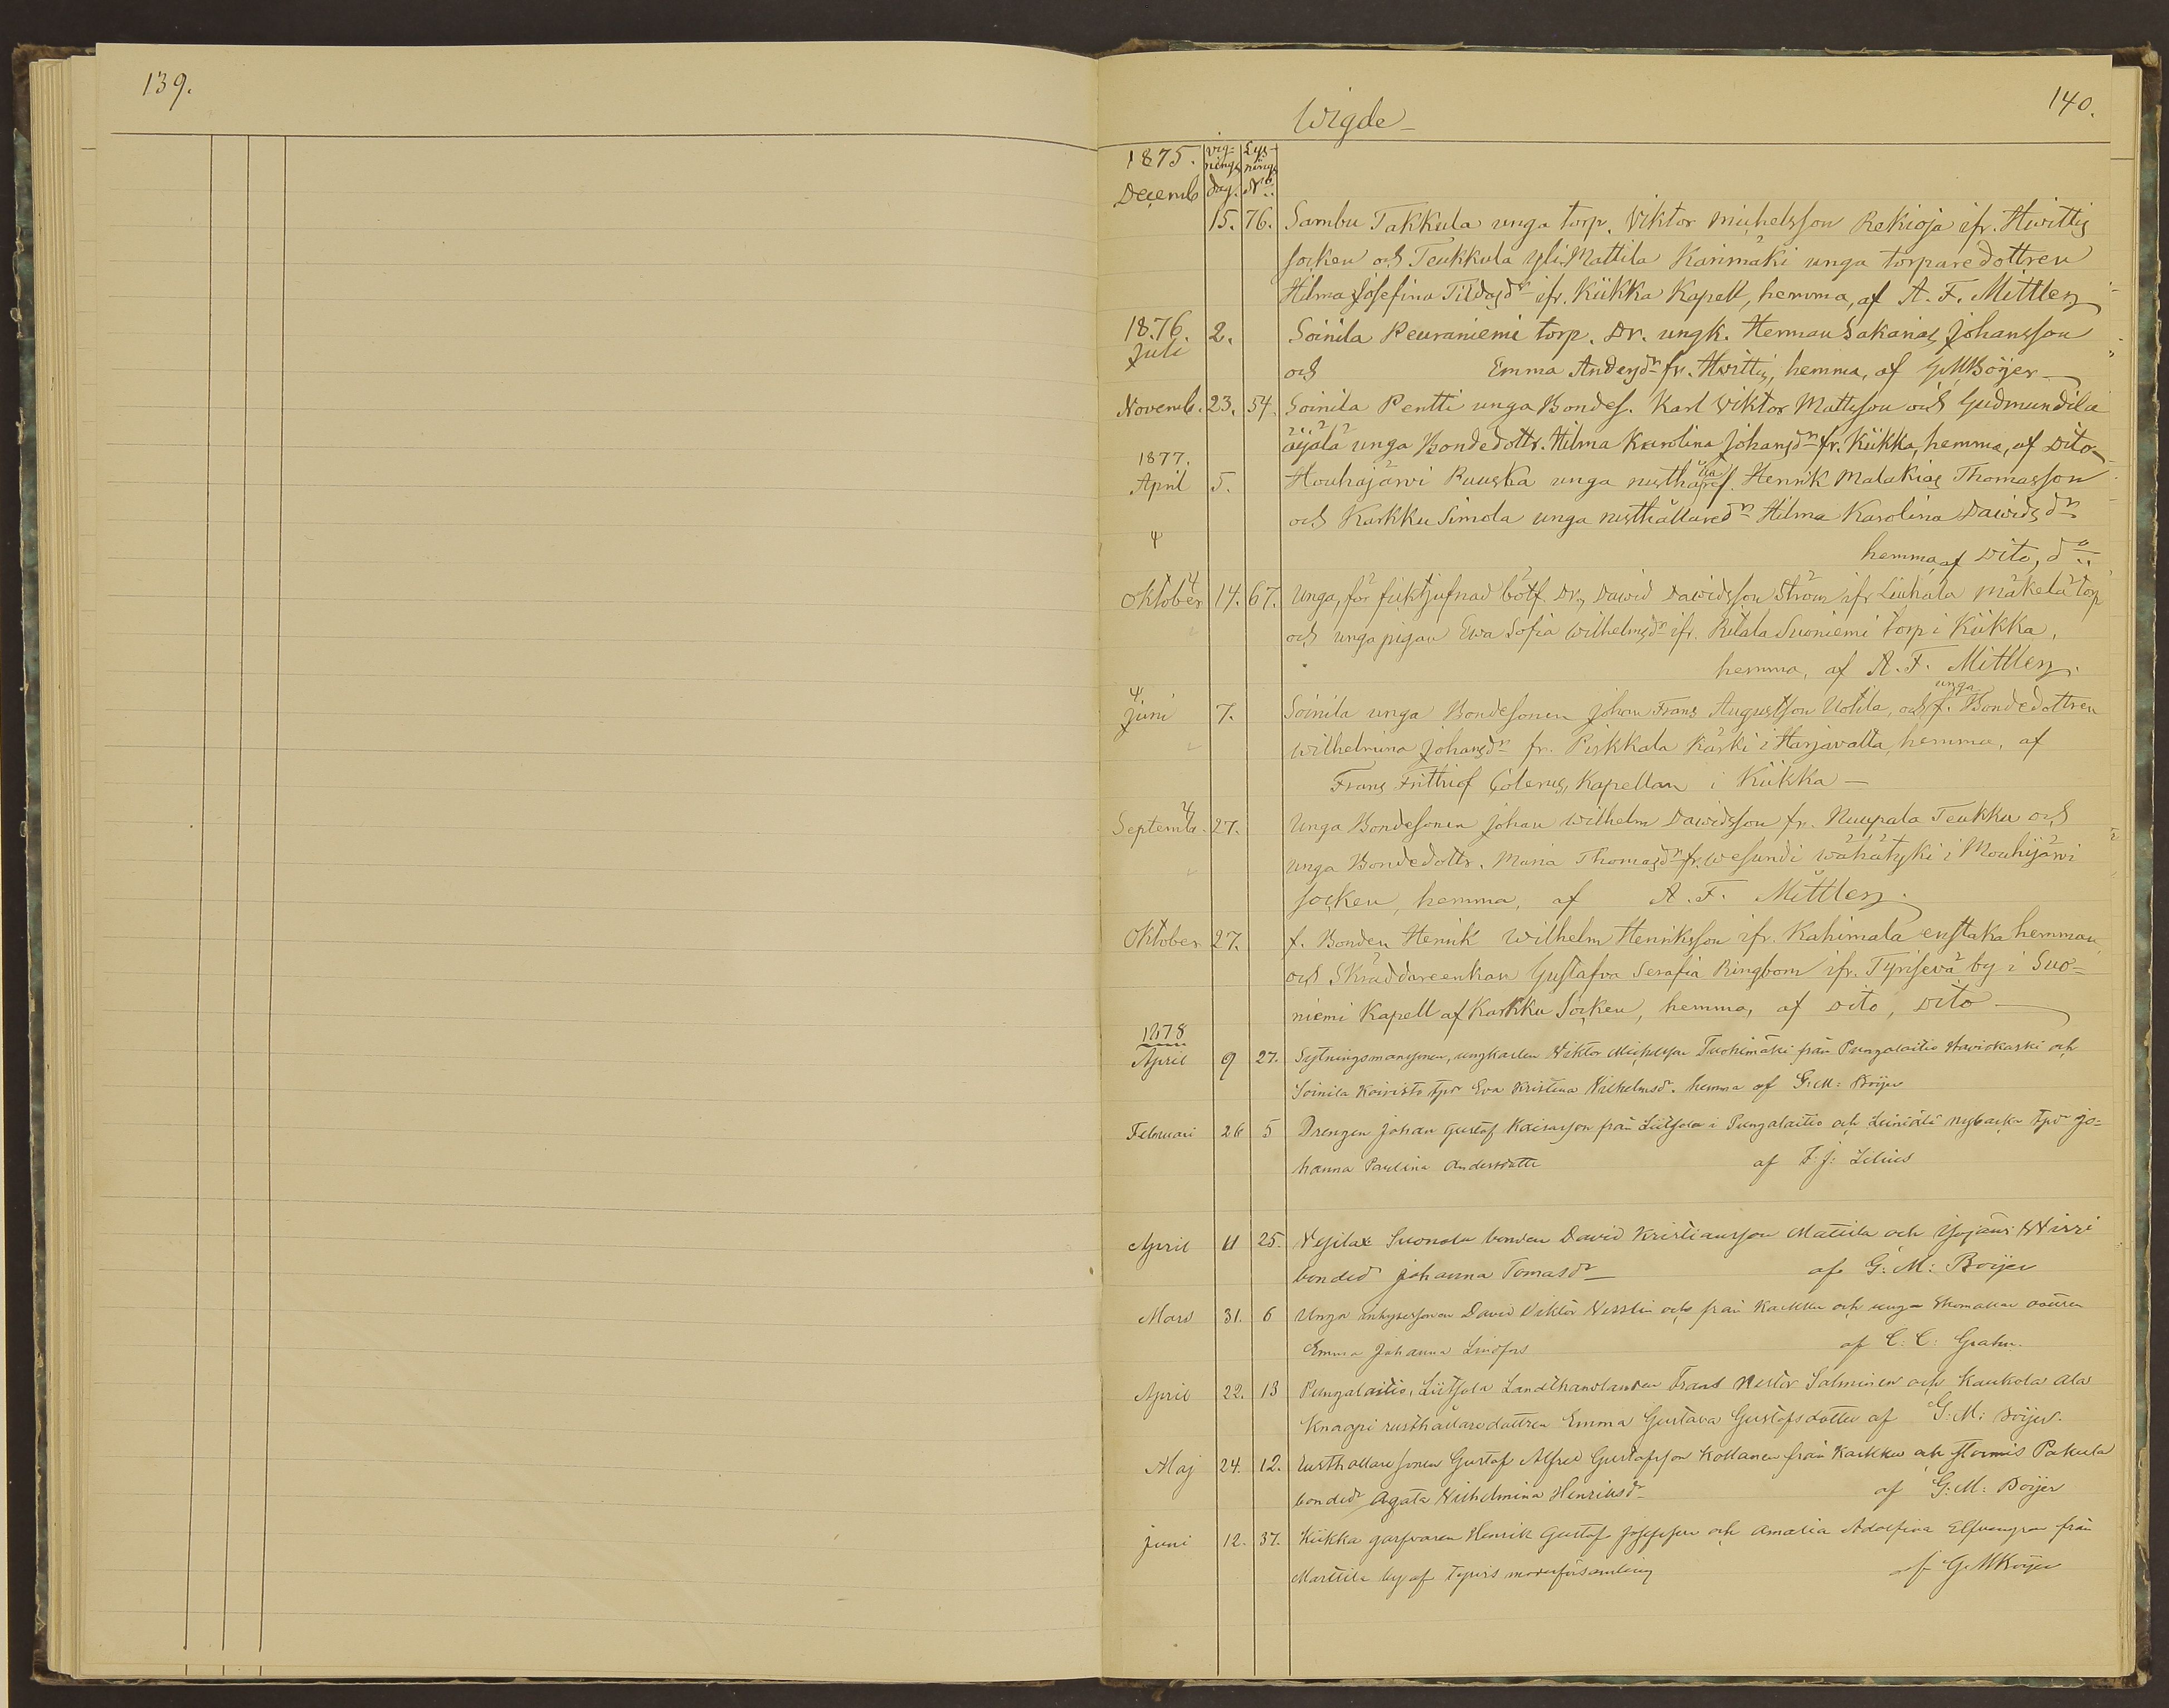 139.
140.
Wigde
1875. vig- Lys-
nings nings
Decemb dag. No
15. 76. Sambu Takkula unga torp. Viktor Michelsson Rekioja ifr. Hwittis
socken och Teukkula Yli Mattila Karimäki unga torparedottren
Hilma Josefina Tildasdr ifr. Kiikka Kapell, hemma, af A. F. Mittler
1876.
Juli 2. Soinila Peuraniemi torp. Dr. ungk. Herman Sakarias Johansson
och Emma Andersdr fr. Hwittis, hemma, af GMBöijer
Novemb. 23. 54. Soinila Pentti unga Bondes. Karl Viktor Mattsson och Gudmundila
äijälä unga Bondedottr. Hilma Karolina Johansdr fr. Kiikka, hemma, af Dito
1877.
April 5. Houhajärvi Ruuska unga rusthåres. Henrik Malakias Thomasson
och Karkku Simola unga rusthållaredr Hilma Karolina Dawidsdr
hemma af Dito, do
Oktober 14. 67. Unga, för Dr. Dawid Dawidsson Ström ifr Liuhala Mäkelä torp
och unga pigan Ewa Sofia Wilhelmsdr ifr. Ritala Suoniemi torp i Kiikka,
hemma, af A. F. Mittler.
unga
Juni 7. Soinila unga Bondesonen Johan Frans Augustsson Uotila, och f. Bondedottren
Wilhelmina Johansdr fr. Pirkkala Käski i Harjavalta, hemma, af
Frans Frithiof Colerus, Kapellan i Kiikka
Septemb. 27. Unga Bondesonen Johan Wilhelm Dawidsson fr. Nuupala Teukku och
unga Bondedottr. Maria Thomasdr fr. Wesundi Wähätyski i Mouhijärvi
socken, hemma, af A. F. Mittler.
Oktober 27. f. Bonden Henrik Wilhelm Henriksson ifr. Kahimala enstaka hemman
och Skräddareenkan Gustafva Serafia Ringbom ifr. Tyrisevä by i Suo-
niemi Kapell af Karkku Socken, hemma, af Dito, Dito
1878
April 9 27. Sytningsmansonen, ungkarlen Viktor Michelsson Tuohimäki från Pungalaitio Haviokoski och
Soinila Koivisto tpdr Eva Kristina Vilhelmsdr. hemma af G:M: Böijer
Februari 26 5 Drengen Johan Gustaf Kaisasson från Liitsola i Pungalaitio och Leiniälä Nybacka tpdr Jo-
hanna Paulina Andersdotter af F: J: Lilius
April 11 25. Vesilax Suonola bonden David Kristiansson Mattila och Yojäns Wirri
bonded Johanna Tomasdr af G: M: Böijer
Mars 31. 6 Unga inhysessonen David Viktor Nisslin och från Karkku och unga dottren
Emma Johanna Lindfors af C: C: Grahn.
April 22. 13 Pungalaitio, Liitsola Landthandlanden Frans Nestor Salminen och Kaukola Ala
Knaapi rusthållaredottren Emma Gustava Gustafsdotter af G: M: Böijer.
Maj 24. 12. Rusthållaresonen Gustaf Alfred Gustafsson Kollanen från Karkku och Stormis Pakula
bondedr Agata Vilhelmina Henriksdr af G: M: Böijer
Juni 12. 37. Kiikka garfvaren Henrik Gustaf Josefsson och Amalia Adolfina Elfvengren från
Marttila by af Tyrvis moderförsamling af GMBöijer